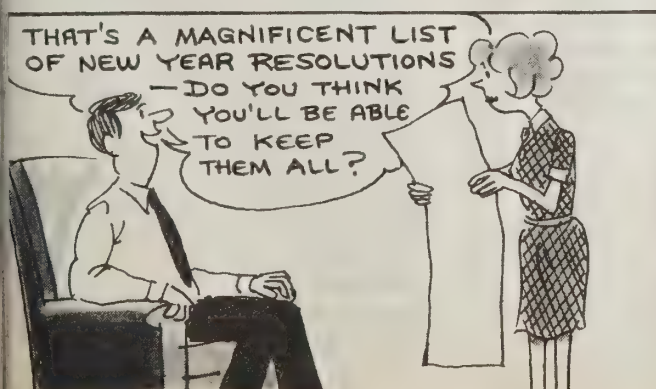 THAT'S A MAGNIFICENT LIST
OF NEW YEAR RESOLUTIONS
— DO YOU THINK
YOU'LL BE ABLE
TO KEEP
THEM ALL?